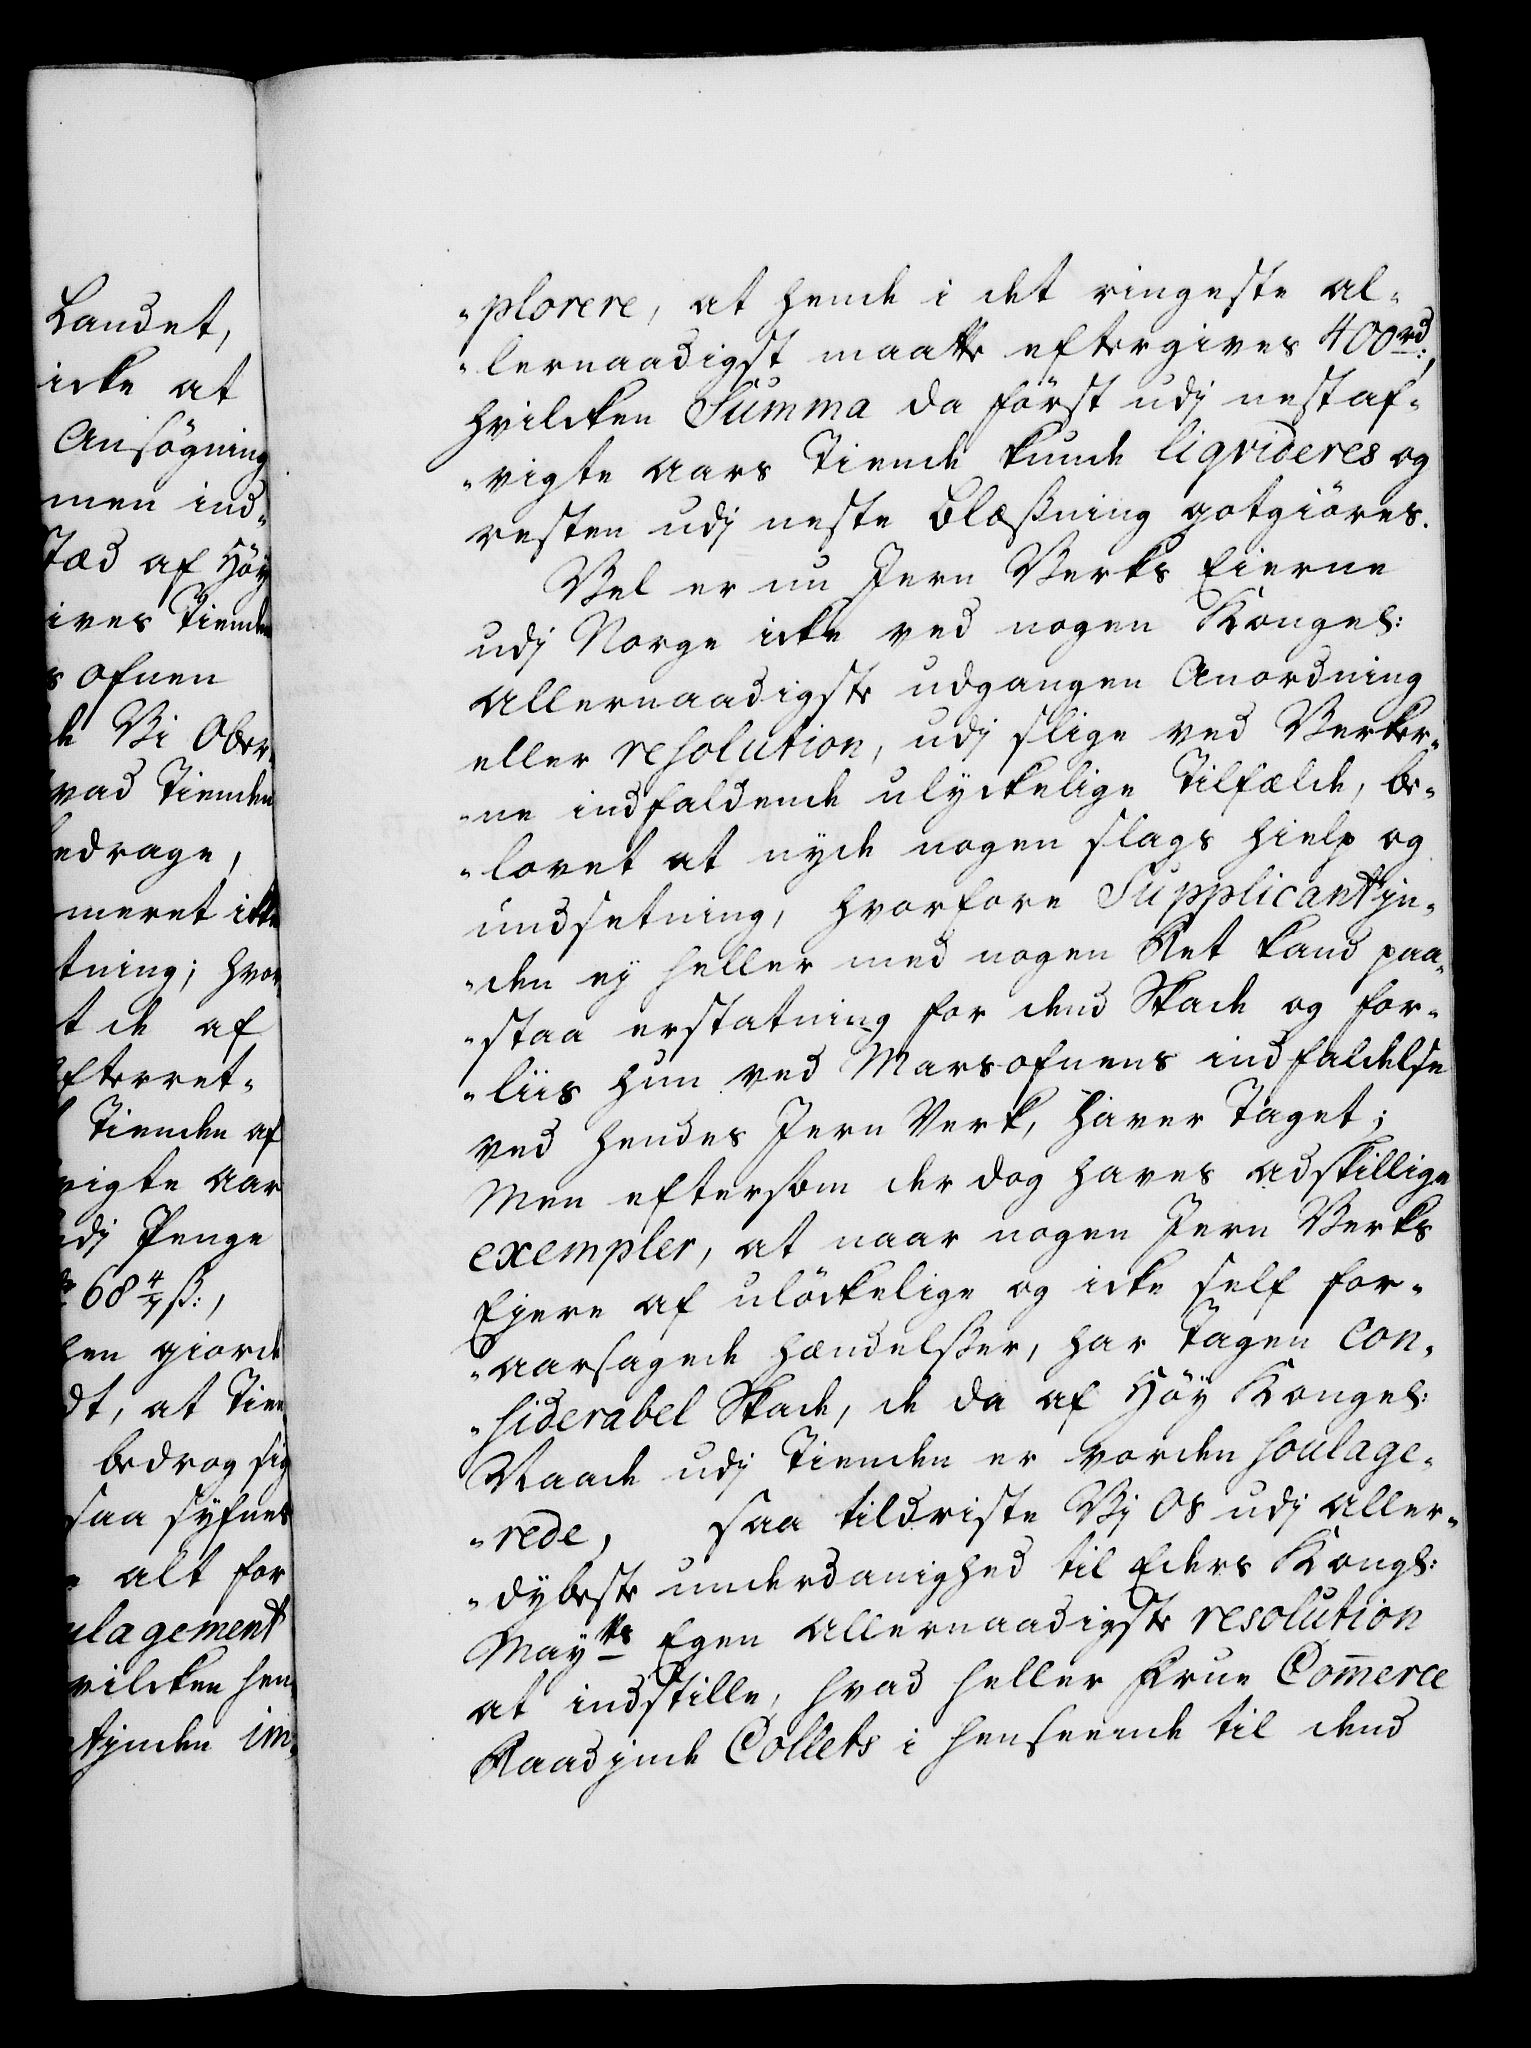 Landet,
icke at
Ansøgning
men ind-
tæd af Høy
ives Tiende
s ofnen
de Vi Ober-
vad Tienden
bedrage,
meret ikke
tning; hvor
t de af
fterret-
Tienden af
vigte aar
udj Penge
68 4/7 ß:,
hen giorde
dt, at Tien
bedrog sig
saa syfnes
alt for
ulagement
vilcken hen-
tjnden im-
-plorere, at hende i det ringeste al-
-lernaadigst maatte eftergives 400 rd:,
hvilcken Summa da först udj nestaf-
-vigte aars Tiende kunde liqvideres og
resten udj neste blæßning gotgiöres.
Vel er nu Jern Verks Eierne
udj Norge icke ved nogen Kongel:
allernaadigste udgangen Anordning
eller resolution, udj slige ved Verker-
-ne indfaldende ulyckelige Tilfælde, be-
-lovet at nyde nogen slags hielp og
undsetning, hvorfore Supplicantjn-
-den ey heller med nogen Ret kand paa-
-staa erstatning for dend Skade og for-
-liis hun ved Marsofnens indfaldelse
ved hendes Jern Verk, haver taget;
Men eftersom der dog haves adskillige
exempler, at naar nogen Jern Verks
Ejere af ulöckelige og icke self for-
-aarsagede hændelßer, har tagen con-
-siderabel Skade, de da af Höy Kongel:
Naade udj Tienden er vorden soulage-
-rede, saa tildriste Vj Os udj aller-
-dybeste underdanighed til Eders Kongl:
Mayts Egen allernaadigste resolution
at indstille, hvad heller Frue Com̅erce
Raadjnde Collets i henseende til dend